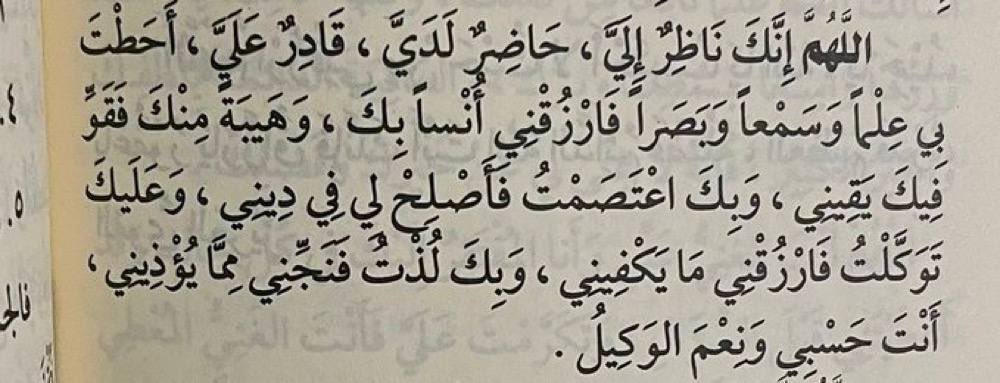 اللَّهُمَّ إِنَّكَ نَاظِرٌ إِلَيَّ ، حَاضِرٌ لَدَيَّ ، قَادِرٌ عَلَيَّ ، أَحَطْتَ
بِي عِلْماً وَسَمْعاً وَبَصَراً فَارْزُقْنِي أُنْساً بِكَ ، وَهَيبَةً مِنْكَ فَقَوِّ
فِيكَ يَقِينِي ، وَبِكَ اعْتَصَمْتُ فَأَصْلِحْ لِي فِي دِينِي ، وَعَلَيكَ
تَوَكَّلْتُ فَارْزُقْنِي مَا يَكْفِينِي ، وَبِكَ لُذْتُ فَنَجِّنِي مِمَّا يُؤْذِينِي ،
أَنْتَ حَسْبِي وَنِعْمَ الوَكِيلُ .
٤.
٥.